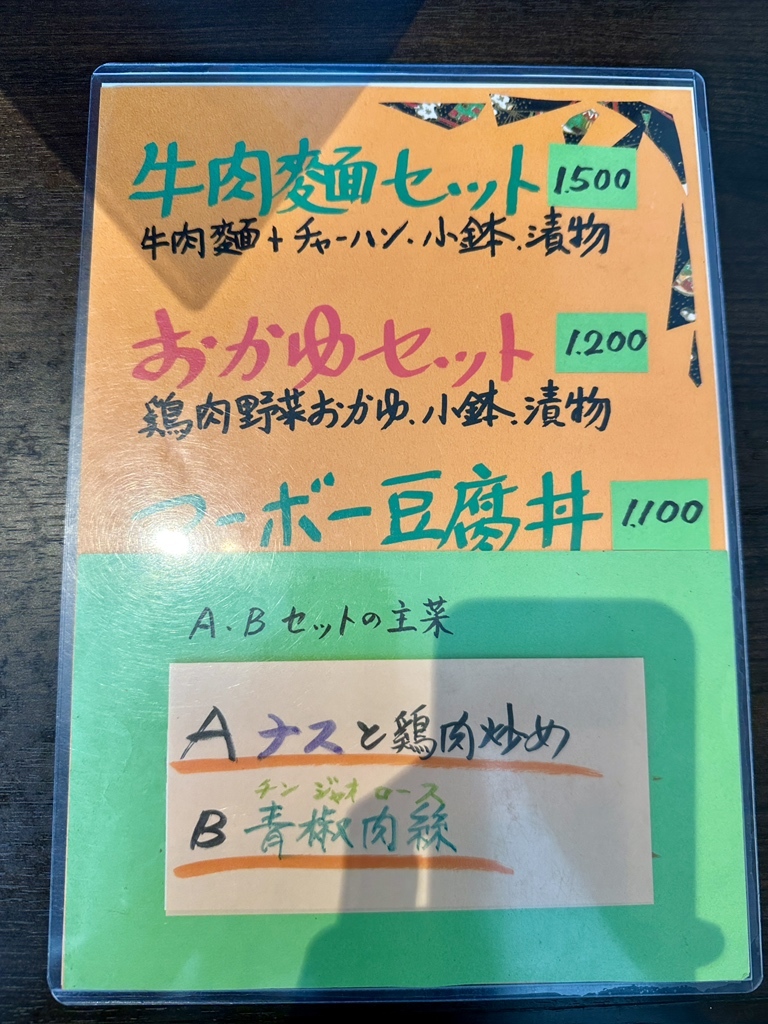 牛肉麵セット 1.500
牛肉麵+チャーハン.小鉢.漬物
おかゆセット 1.200
鶏肉野菜おかゆ.小鉢.漬物
マーボー豆腐丼 1.100
A.Bセットの主菜
A ナスと鶏肉炒め
チンジャオロース
B 青椒肉絲